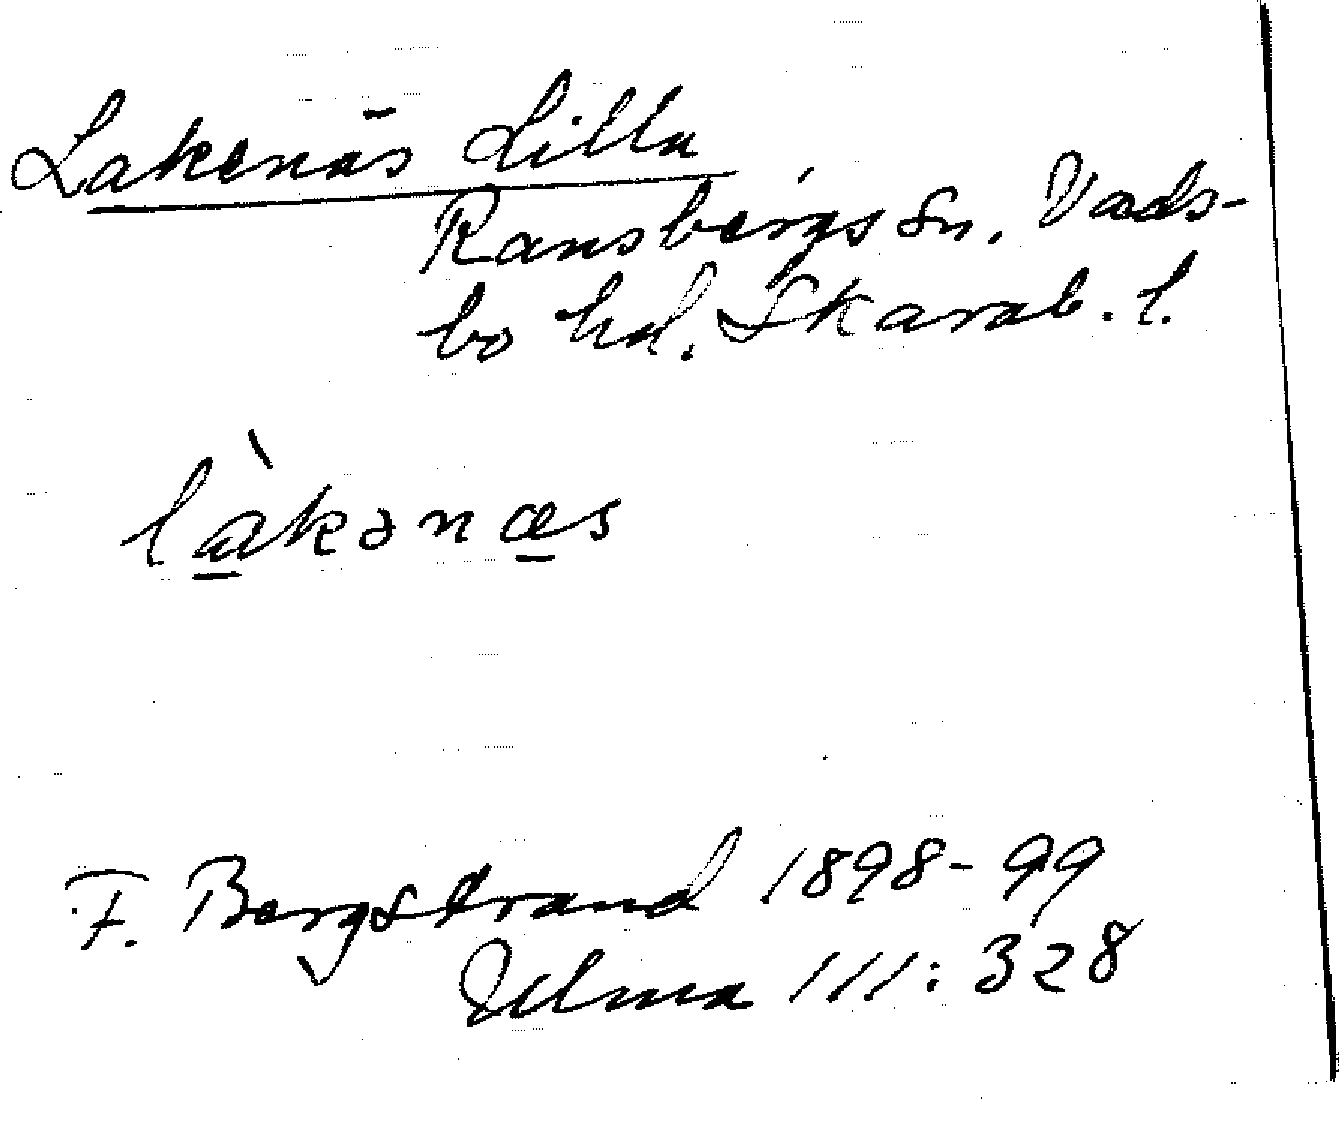 Lakenäs Lilla
Ransbergs sn. Vads-
bo hd. Skarab. l.
là̱kənæ̱s
F. Bergstrand 1898-99
Ulma 111:328